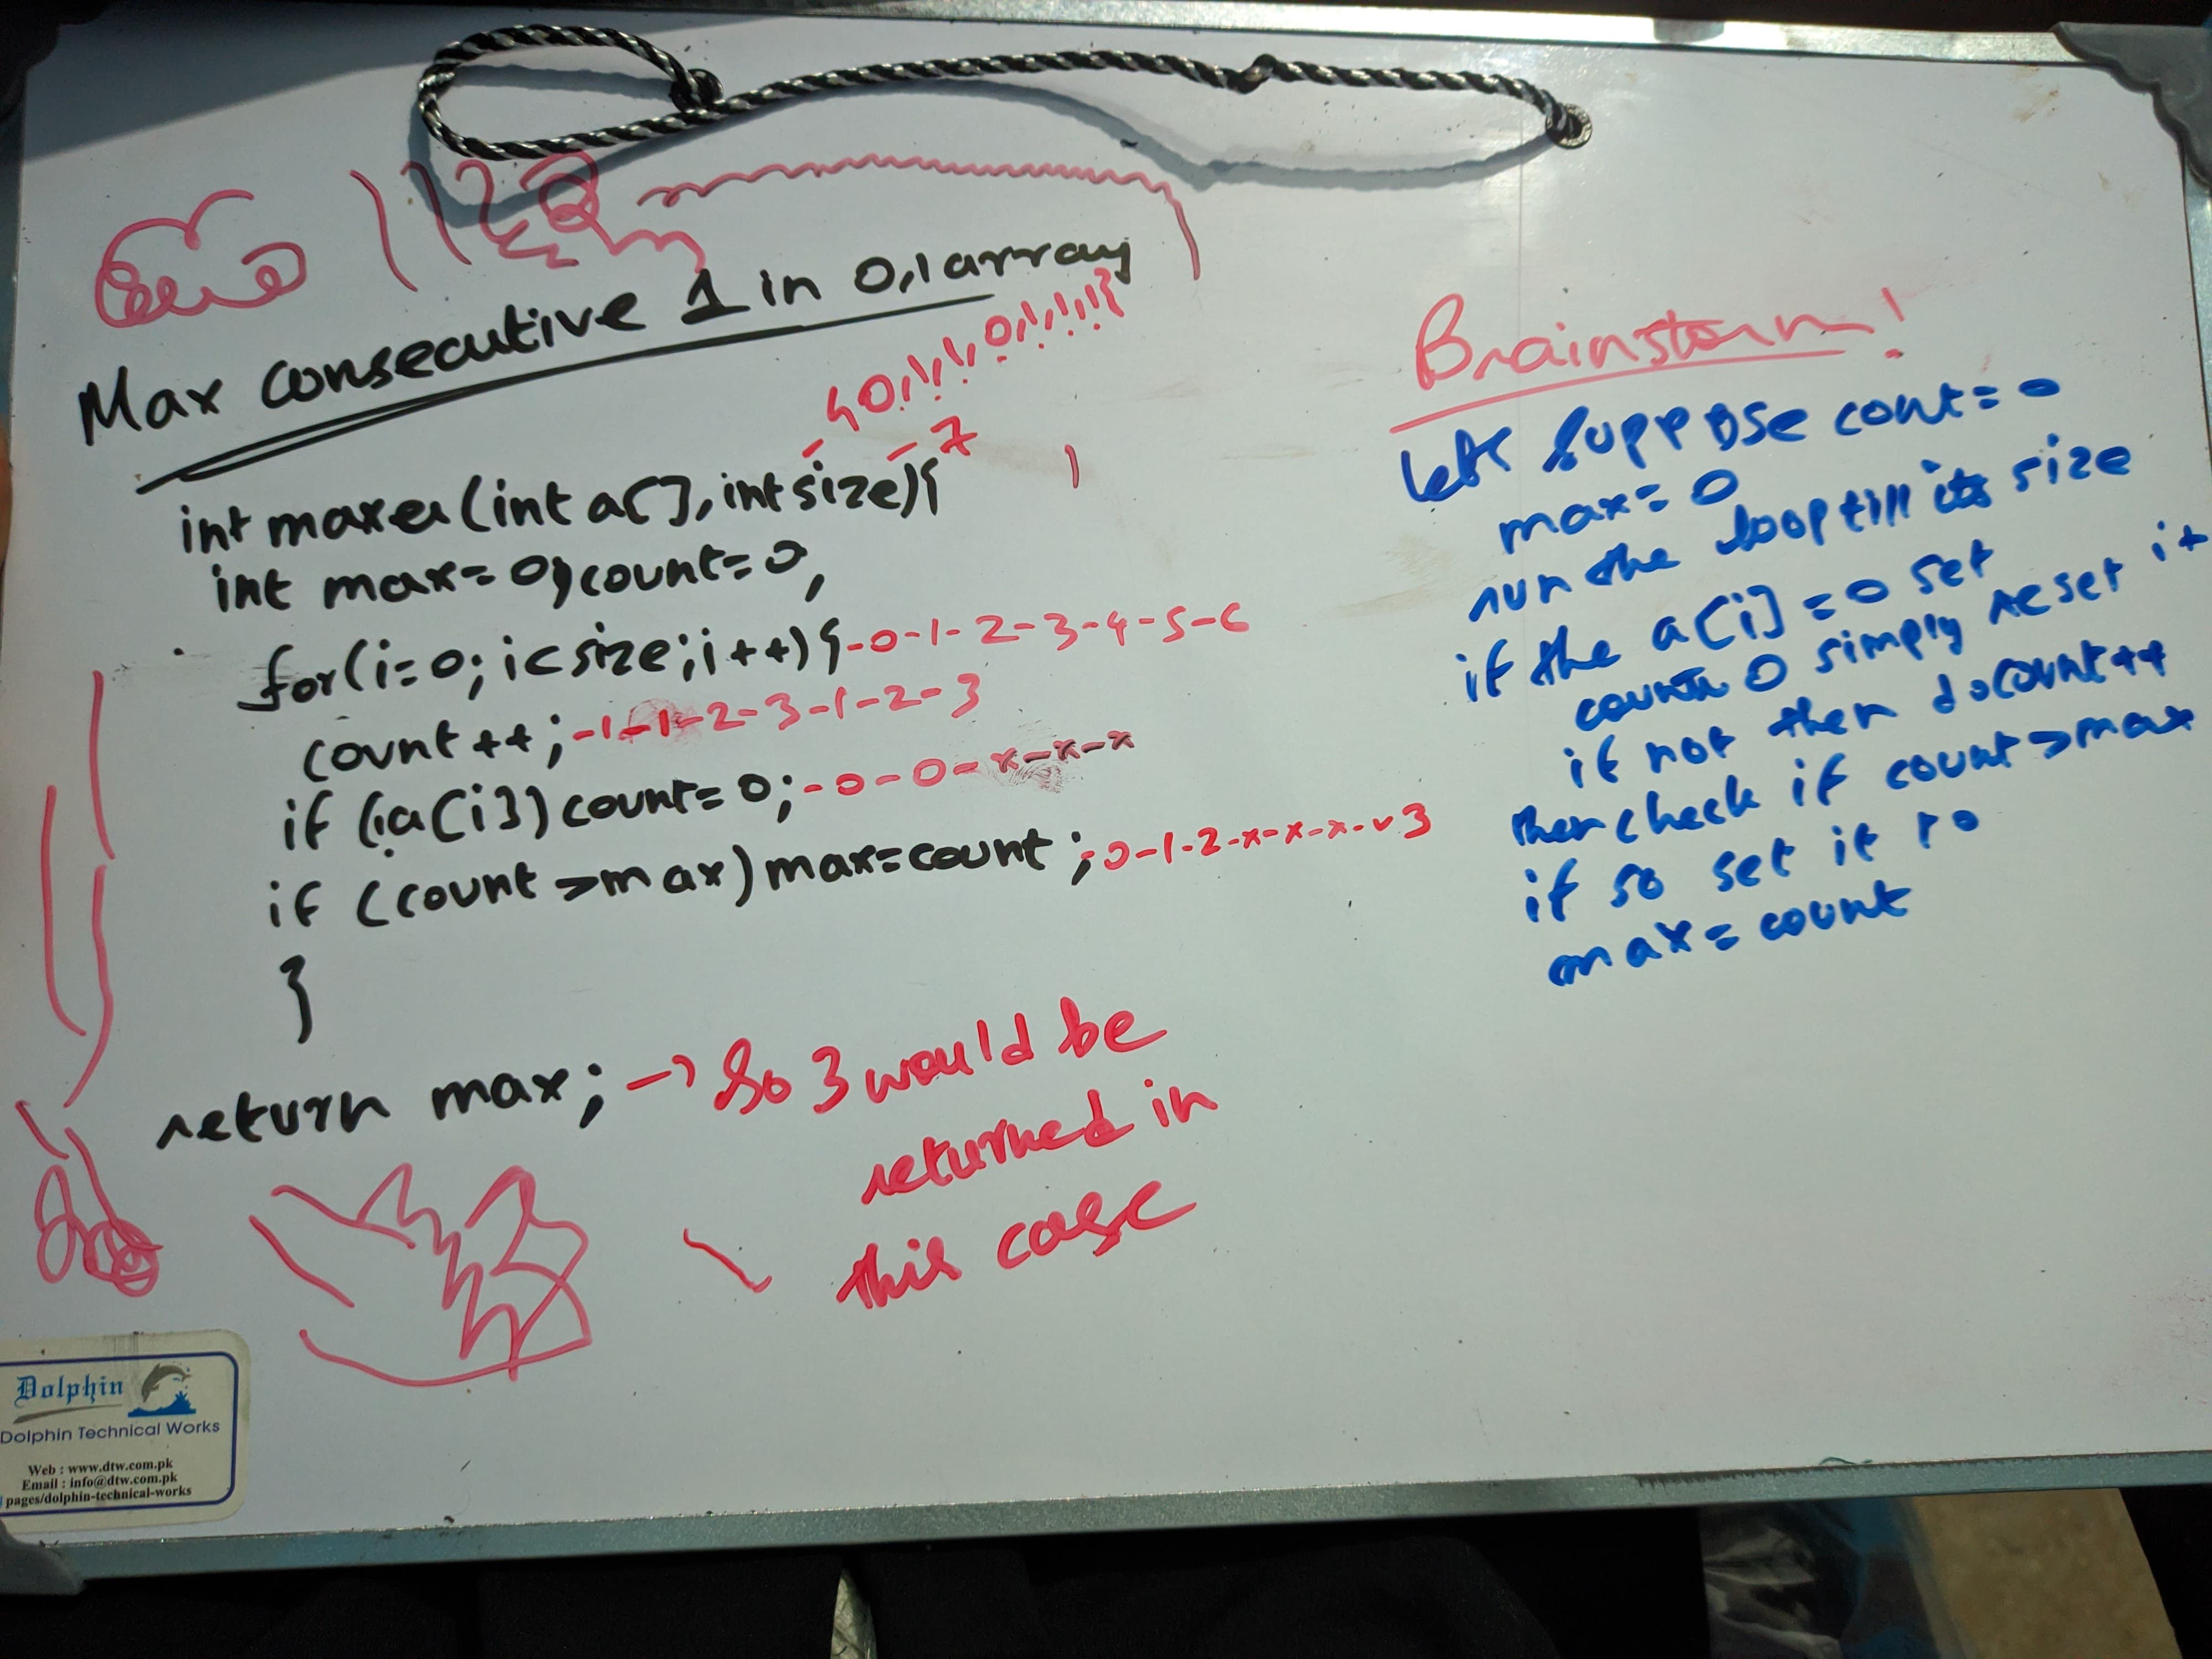 Max consecutive 1 in 0,1 array
int maxer(int a[], int size){
- 7
int max=0,count=0,
for(i=0; i<size;i++){-0-1-2-3-4-5-6
count++;-1-1-2-3-1-2-3
if (!a[i])count=0;-0-0-x-x-x
if (count>max)max=count;-0-1-2-x-x-x-v3
}
return max; → So 3 would be
returned in
this case
Brainstorm!
lets suppose cont=0
max=0
run the loop till its size
if the a[i]=0 set
count 0 simply reset it
if not then do count++
then check if count>max
if so set it to
max=count
Dolphin
Dolphin Technical Works
Web : www.dtw.com.pk
Email : info@dtw.com.pk
pages/dolphin-technical-works